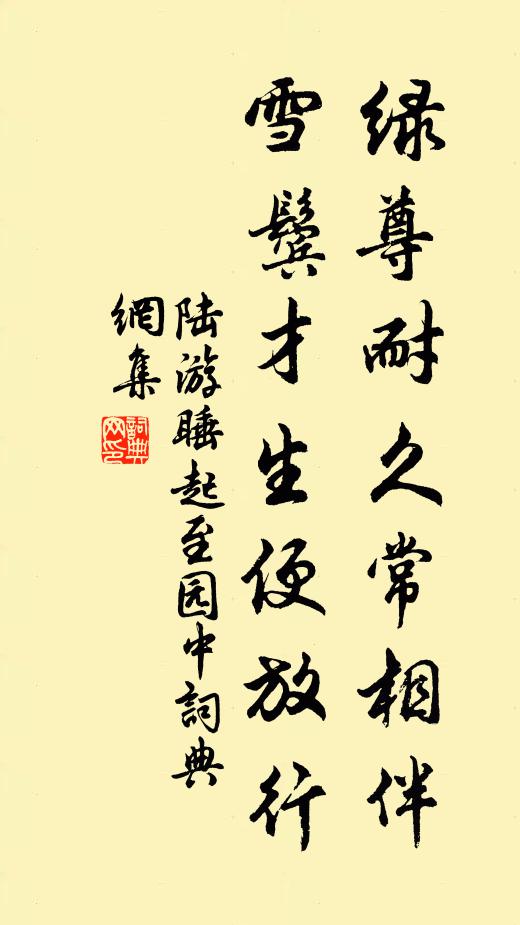 绿尊耐久常相伴
雪鬓才生便放行
陆游睡起至园中詞典
網集
詞典
网印